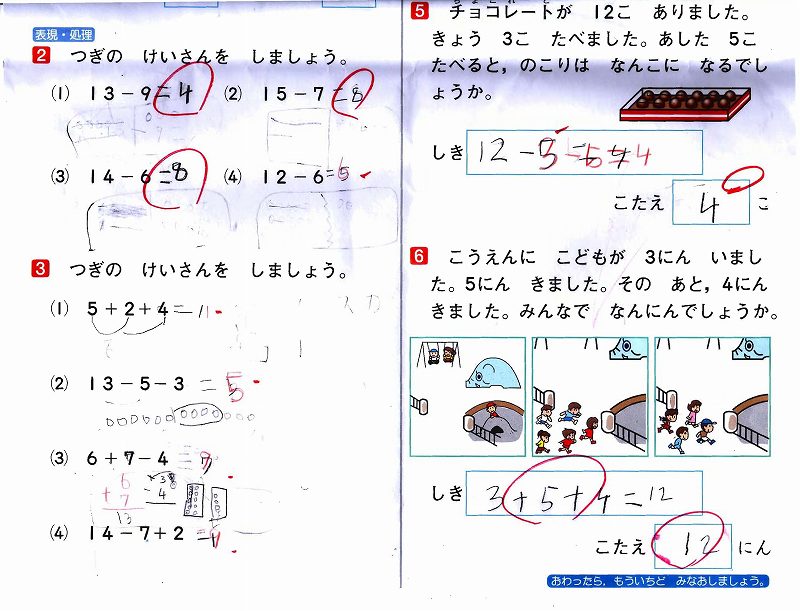 表現・処理
2 つぎの けいさんを しましょう。
(1) 13-9=4 (2) 15-7=8
(3) 14-6=8 (4) 12-6=6
3 つぎの けいさんを しましょう。
(1) 5+2+4=11
(2) 13-5-3=5
(3) 6+7-4=9
6
+7
13
(4) 14-7+2=
5 チョコレートが 12こ ありました。
きょう 3こ たべました。あした 5こ
たべると，のこりは なんこに なるでし
ょうか。
しき 12-
こたえ 4 こ
6 こうえんに こどもが 3にん いまし
た。5にん きました。その あと，4にん
きました。みんなで なんにんでしょうか。
しき 3+5+4=12
こたえ 12 にん
おわったら，もういちど みなおしましょう。